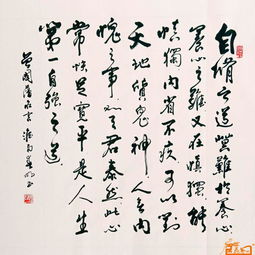 自脩之道莫難於養心
養心之難又在慎獨能
慎獨内省不疚可以對
天地質鬼神人無内
愧之事則天君泰然此心
常快足寬平是人生
第一自強之道
曾國藩名言